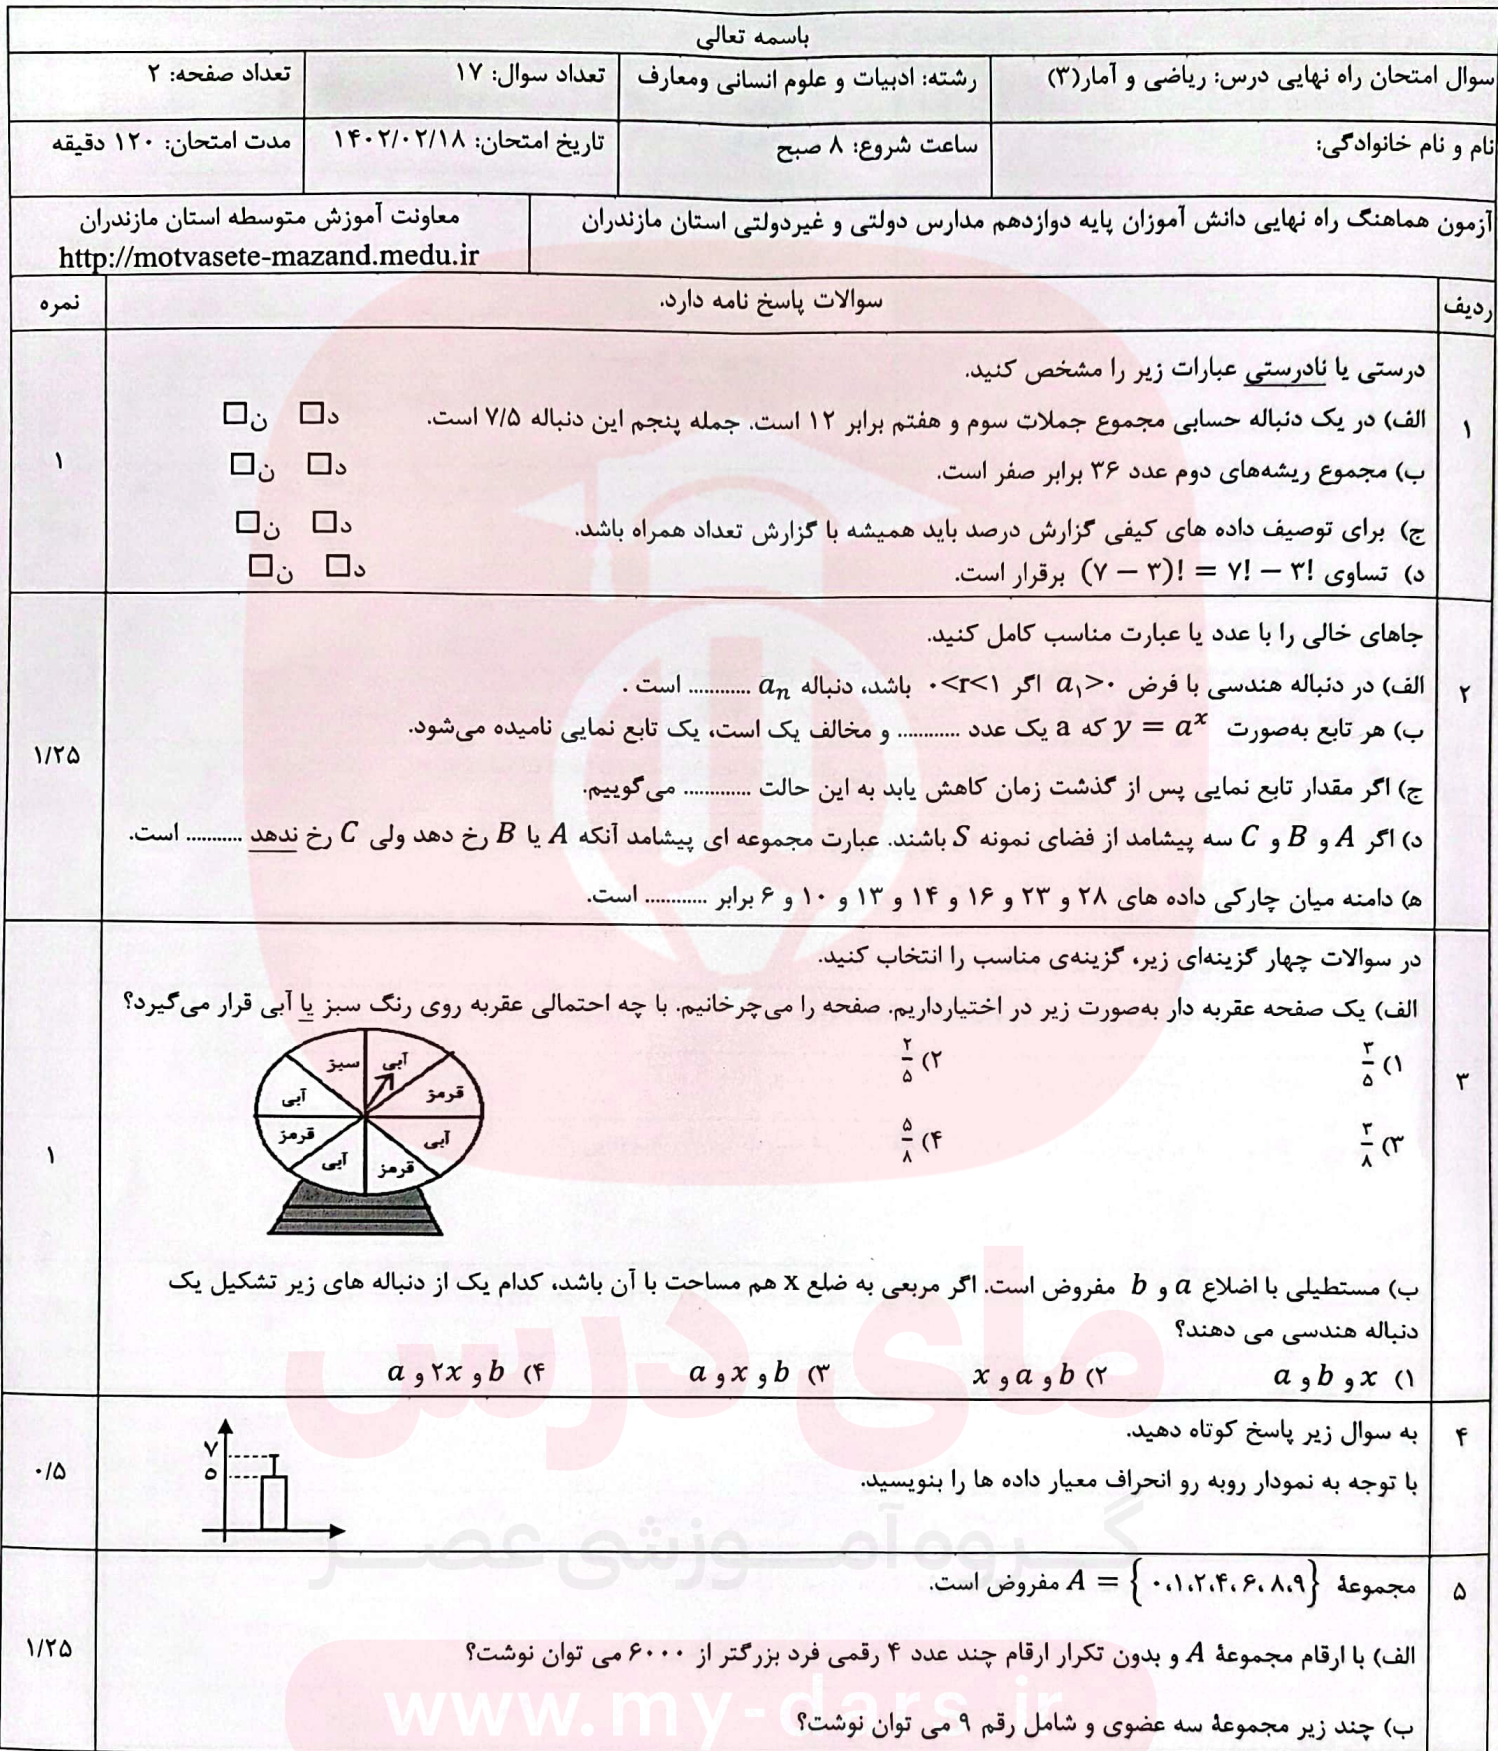 باسمه تعالی
سوال امتحان راه نهایی درس: ریاضی و آمار(۳) رشته: ادبیات و علوم انسانی ومعارف تعداد سوال: ۱۷ تعداد صفحه: ۲
نام و نام خانوادگی: ساعت شروع: ۸ صبح تاریخ امتحان: ۱۴۰۲/۰۲/۱۸ مدت امتحان: ۱۲۰ دقیقه
آزمون هماهنگ راه نهایی دانش آموزان پایه دوازدهم مدارس دولتی و غیردولتی استان مازندران معاونت آموزش متوسطه استان مازندران
http://motvasete-mazand.medu.ir
ردیف سوالات پاسخ نامه دارد. نمره
درستی یا نادرستی عبارات زیر را مشخص کنید.
۱ الف) در یک دنباله حسابی مجموع جملات سوم و هفتم برابر ۱۲ است. جمله پنجم این دنباله ۷/۵ است. د□ ن□
ب) مجموع ریشه‌های دوم عدد ۳۶ برابر صفر است. د□ ن□ ۱
ج) برای توصیف داده های کیفی گزارش درصد باید همیشه با گزارش تعداد همراه باشد. د□ ن□
د) تساوی (۷ − ۳)! = ۷! − ۳! برقرار است. د□ ن□
جاهای خالی را با عدد یا عبارت مناسب کامل کنید.
۲ الف) در دنباله هندسی با فرض a₁>۰ اگر ۰<r<۱ باشد، دنباله aₙ ............ است .
ب) هر تابع به‌صورت y = aˣ که a یک عدد ............ و مخالف یک است، یک تابع نمایی نامیده می‌شود. ۱/۲۵
ج) اگر مقدار تابع نمایی پس از گذشت زمان کاهش یابد به این حالت ............. می‌گوییم.
د) اگر A و B و C سه پیشامد از فضای نمونه S باشند. عبارت مجموعه ای پیشامد آنکه A یا B رخ دهد ولی C رخ ندهد ........... است.
ه) دامنه میان چارکی داده های ۲۸ و ۲۳ و ۱۶ و ۱۴ و ۱۳ و ۱۰ و ۶ برابر ............ است.
در سوالات چهار گزینه‌ای زیر، گزینه‌ی مناسب را انتخاب کنید.
۳ الف) یک صفحه عقربه دار به‌صورت زیر در اختیارداریم. صفحه را می‌چرخانیم. با چه احتمالی عقربه روی رنگ سبز یا آبی قرار می‌گیرد؟ ۱
۱) ۳/۵ ۲) ۲/۵
۳) ۳/۸ ۴) ۵/۸
سبز آبی
آبی قرمز
قرمز آبی
آبی قرمز
ب) مستطیلی با اضلاع a و b مفروض است. اگر مربعی به ضلع x هم مساحت با آن باشد، کدام یک از دنباله های زیر تشکیل یک
دنباله هندسی می دهند؟
۱) x و b و a ۲) b و a و x ۳) b و x و a ۴) b و ۲x و a
۴ به سوال زیر پاسخ کوتاه دهید.
با توجه به نمودار روبه رو انحراف معیار داده ها را بنویسید. ۰/۵
۷
۵
۵ مجموعهٔ A = {۰،۱،۲،۴،۶،۸،۹} مفروض است.
الف) با ارقام مجموعهٔ A و بدون تکرار ارقام چند عدد ۴ رقمی فرد بزرگتر از ۶۰۰۰ می توان نوشت؟ ۱/۲۵
ب) چند زیر مجموعهٔ سه عضوی و شامل رقم ۹ می توان نوشت؟
مای درس
گروه آموزشی عصر
www.my-dars.ir